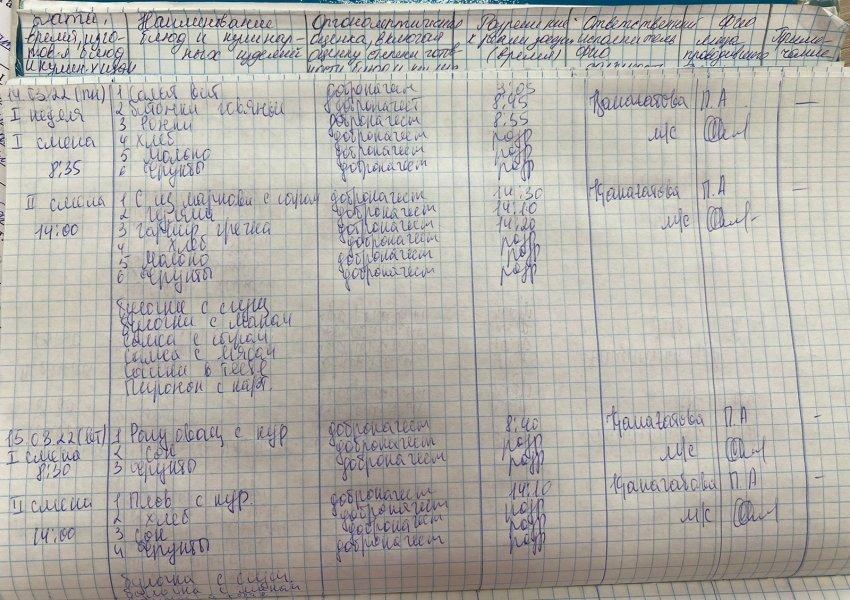 Дата, Наименование Органолептическая Разрешение Ответственный ФИО
время, изго блюд и кулинар- оценка, включая к реализации исполнитель лица Приме-
тов-я блюд ных изделий оценку степени готов (время) ФИО проводившего чание
и кулин.х изд
14.03.22 (пн) 1 Салат вит доброкачест 3:05
I неделя 2 доброкачест 8:45 П.А —
3 доброкачест 8:55
I смена 4 Хлеб доброкачест разр м/с
5 Молоко доброкачест разр
8:35 6 Фрукты доброкачест разр
II смена 1 С из моркови с сыром доброкачест 14:30 П.А —
2 доброкачест 14:10
14:00 3 Гарнир гречка доброкачест 14:20 м/с
4 Хлеб доброкачест разр
5 Молоко доброкачест разр
6 Фрукты доброкачест разр
Булочки с
Булочки с маком
Самса с сыром
Самса с мясом
Сосиски в тесте
Пирожок с карт.
15.03.22 (вт) 1 Рагу овощ с кур доброкачест 8:40 П.А -
I смена 2 Сок доброкачест разр м/с
8:30 3 Фрукты доброкачест разр
II смена 1 Плов с кур доброкачест 14:10 П.А -
2 Хлеб доброкачест разр
14:00 3 Сок доброкачест разр м/с
4 Фрукты доброкачест разр
Булочка с